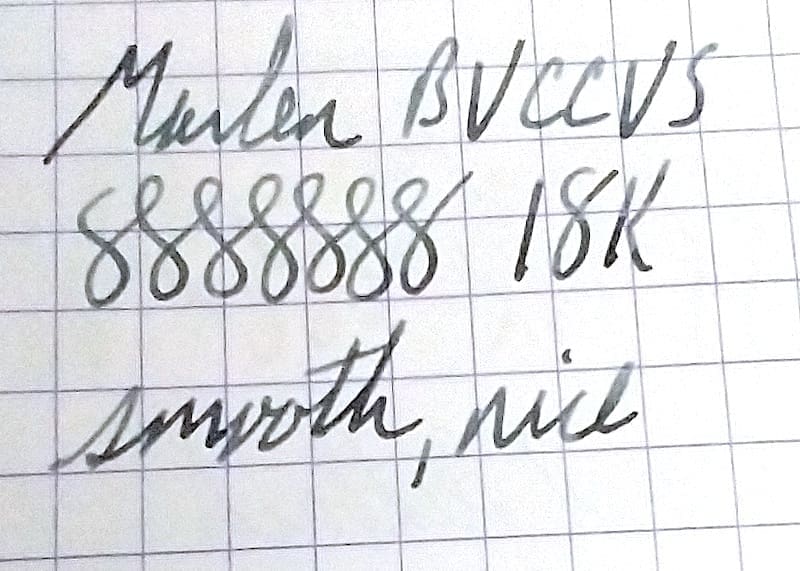 Marlen BVCCVS
8888888 18K
smooth, nice